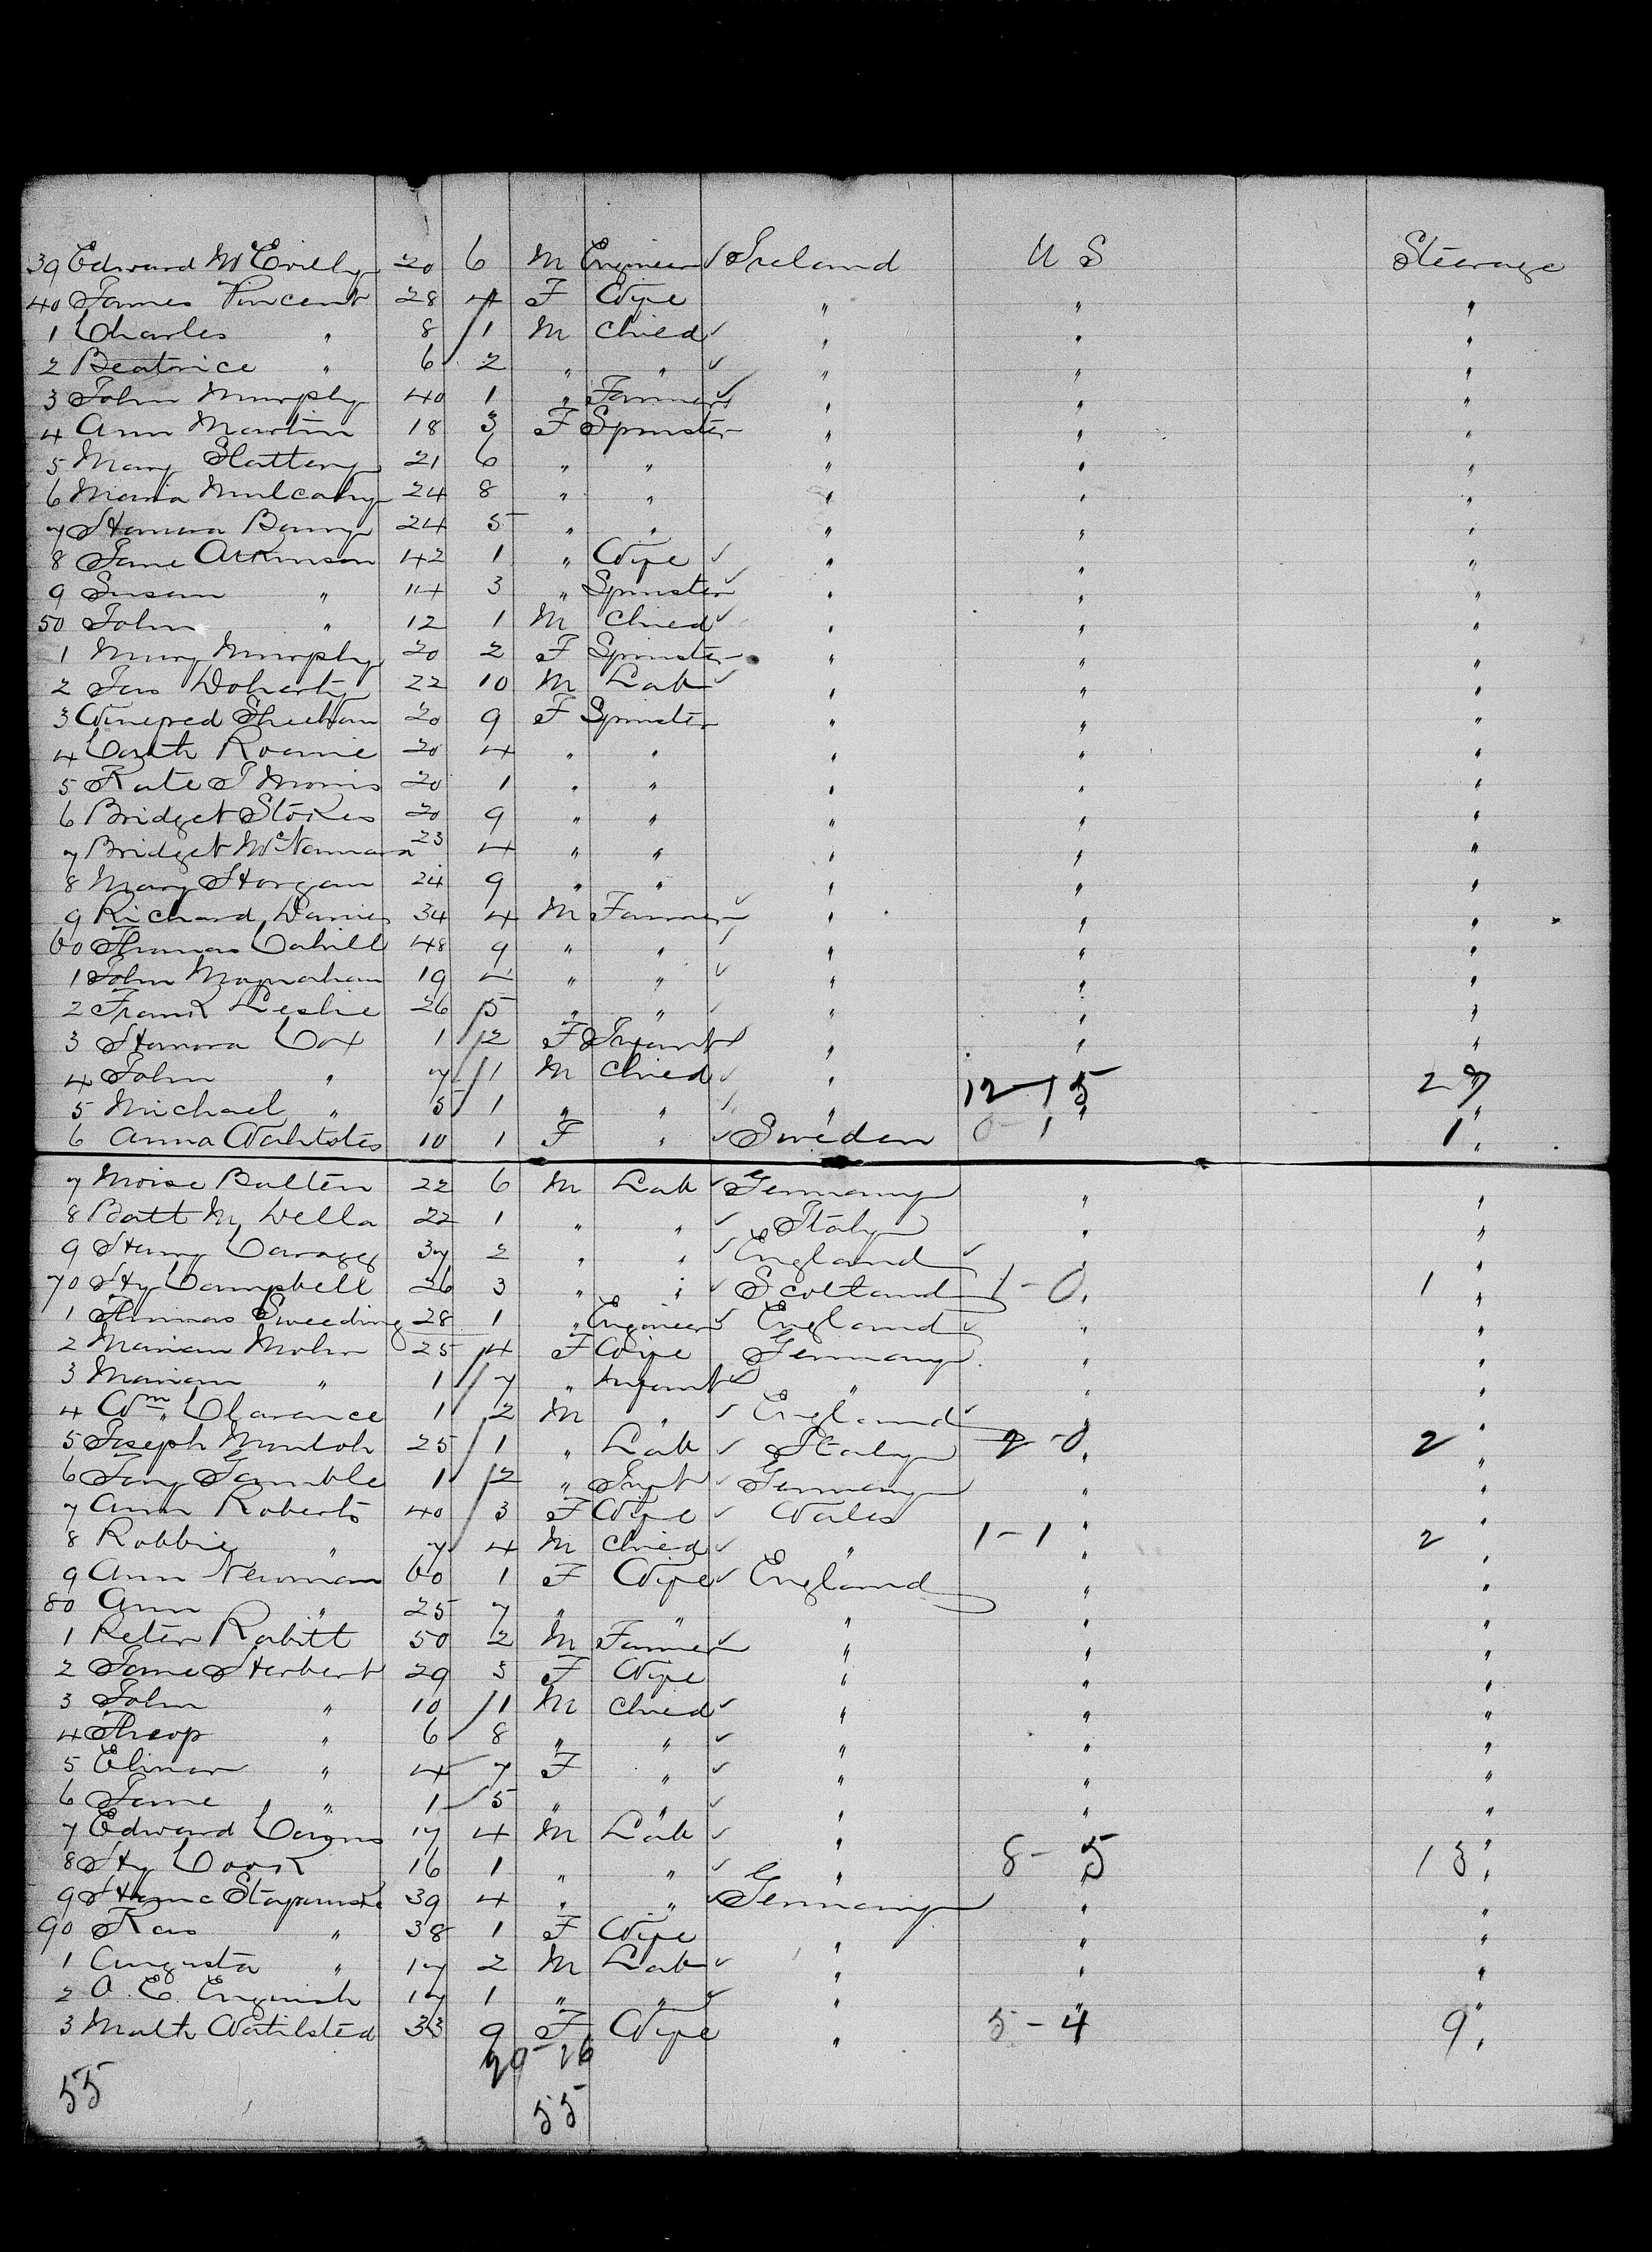 39 Edward McEvilly 20 6 M Engineer ✓ Ireland U S Steerage
40 James Vincent 28 4 F Wife " " "
1 Charles " 8 1 M Child ✓ " " "
2 Beatrice " 6 2 " " ✓ " " "
3 John Murphy 40 1 " Farmer ✓ " " "
4 Ann Martin 18 3 F Spinster " " "
5 Mary Slattery 21 6 " " " " "
6 Maria Mulcahy 24 8 " " " " "
7 Hanora Barry 24 5 " " " " "
8 Jane Atkinson 42 1 " Wife ✓ " " "
9 Susan " 14 3 " Spinster ✓ " " "
50 John " 12 1 M Child ✓ " " "
1 Mary Murphy 20 2 F Spinster " " "
2 Jas Doherty 22 10 M Lab ✓ " " "
3 Winefred Sheehan 20 9 F Spinster " " "
4 Cath Roamie 20 4 " " " " "
5 Kate J Morris 20 1 " " " " "
6 Bridget Stokes 20 9 " " " " "
7 Bridget McNamara 23 4 " " " " "
8 Mary Horgan 24 9 " " " " "
9 Richard Davies 34 4 M Farmer ✓ " " "
60 Thomas Cahill 48 9 " " ✓ " " "
1 John 19 " " ✓ " " "
2 Frank Leslie 26 5 " " ✓ " " "
3 Hanora Cox 1 2 F Infant ✓ " " "
4 John " 7 1 M Child ✓ " 12-15 27 "
5 Michael " 5 1 " " ✓ " " "
6 Anna Wahtstes 10 1 F " ✓ Sweden 0-1 1 "
7 Moise Balten 22 6 M Lab ✓ Germany " "
8 Batt M Della 22 1 " " ✓ Italy " "
9 Harry 37 2 " " ✓ England ✓ " "
70 Hy Campbell 26 3 " " ✓ Scotland 1-0 " 1 "
1 Thomas Sweeding 28 1 " Engineer ✓ England ✓ " "
2 Mariam Mohr 25 4 F Wife Germany " "
3 Mariam " 1 7 " Infant ✓ " " "
4 Wm Clarance 1 2 M " ✓ England ✓ " "
5 Joseph 25 1 " Lab ✓ Italy 2-0 " 2 "
6 1 2 " Inft ✓ Germany " "
7 Ann Roberts 40 3 F Wife ✓ Wales " "
8 Robbie " 7 4 M Child ✓ " 1-1 " 2 "
9 Ann Newman 60 1 F Wife ✓ England " "
80 Ann " 25 7 " " " " "
1 Peter Rabitt 50 2 M Farmer ✓ " " "
2 Jane Herbert 29 3 F Wife " " "
3 John " 10 1 M Child ✓ " " "
4 Theop " 6 8 " " ✓ " " "
5 Elinor " 4 7 F " ✓ " " "
6 Jane " 1 5 " " ✓ " " "
7 Edward 17 4 M Lab ✓ " " "
8 Hy Cook 16 1 " " ✓ " 8-5 " 13 "
9 39 4 " " ✓ Germany " "
90 " 38 1 F Wife " " "
1 Augusta " 17 2 M Lab ✓ " " "
2 A. E. 17 1 " " ✓ " " "
3 Math Wahlsted 33 9 F Wife " 5-4 " 9 "
29-26
55 55